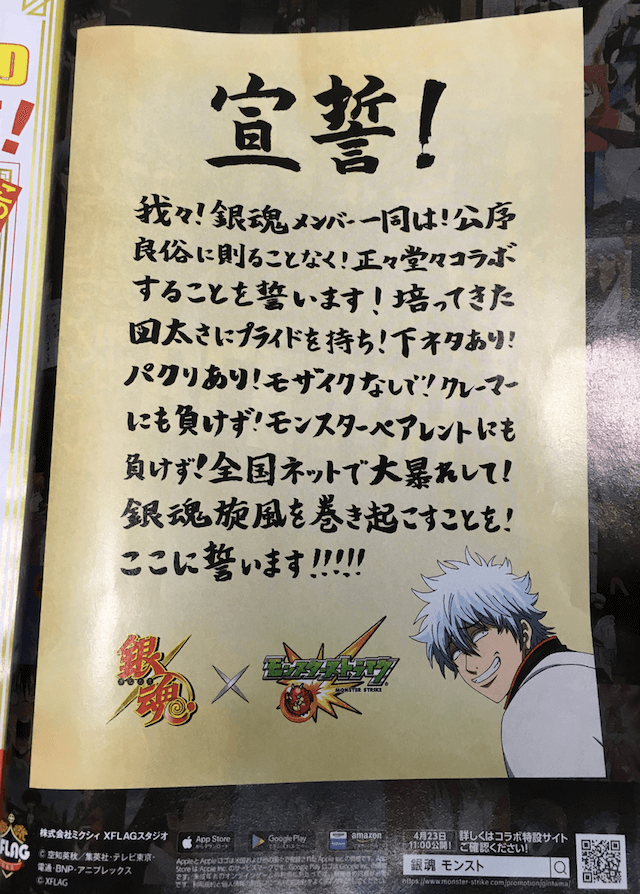 宣誓!
我々!銀魂メンバー一同は!公序
良俗に則ることなく!正々堂々コラボ
することを誓います!培ってきた
図太さにプライドを持ち!下ネタあり!
パクリあり!モザイクなしで!クレーマー
にも負けず!モンスターペアレントにも
負けず!全国ネットで大暴れして!
銀魂旋風を巻き起こすことを!
ここに誓います!!!!!
銀魂
×
モンスターストライク
MONSTER STRIKE
株式会社ミクシィ XFLAGスタジオ
© 空知英秋/集英社・テレビ東京・
電通・BNP・アニプレックス
© XFLAG
App Store
Google Play
amazon
4月23日
11:00公開!
詳しくはコラボ特設サイト
で確認ください!
銀魂 モンスト
XFLAG